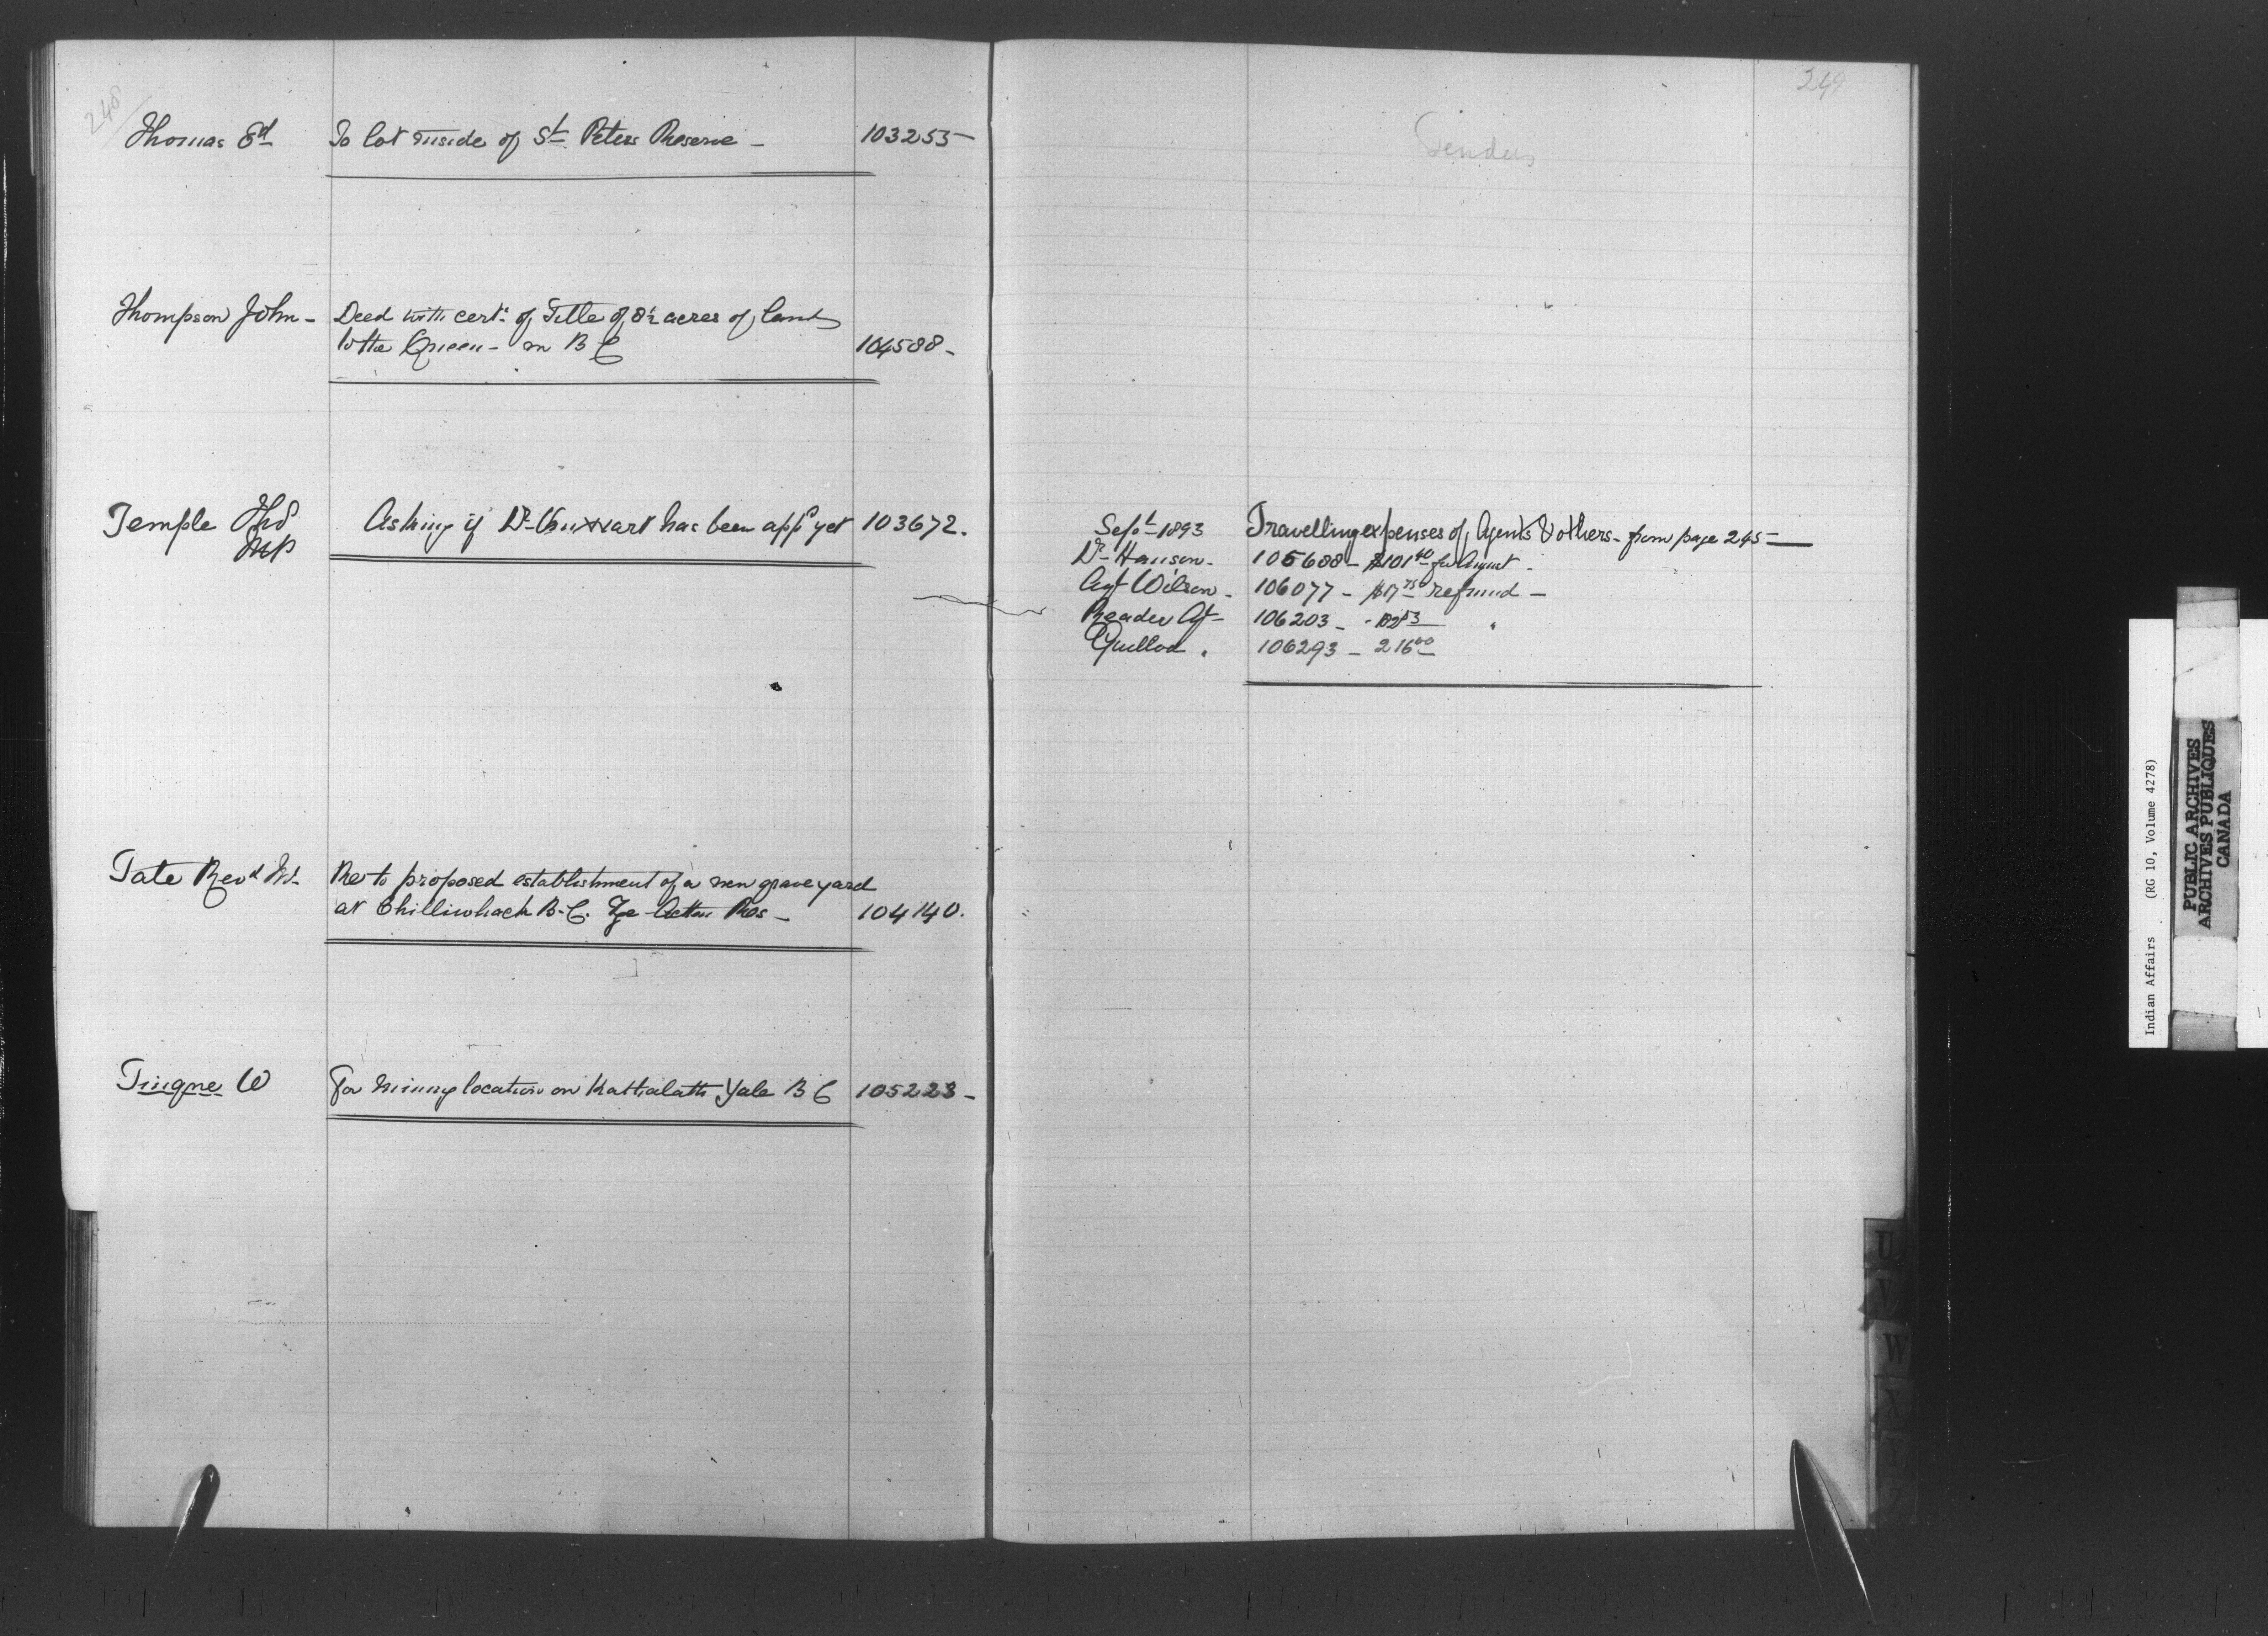 248
Thomas Ed
To lot inside of St Peters Reserve -
103255
Thompson John -
Deed with cert. of Title of 8½ acres of land
to the Queen - in B C
104588 -
Temple Thos
MP
Asking if Dr. has been appd yet
103672.
Tate Revd
Re to proposed establishment of a new graveyard
at Chilliwhack B.C. Res -
104140.
Tingne W
For mining location on Yale B C
105223 -
249
Tenders
Sept 1893
Travelling expenses of Agents & others - from page 245 -
Dr. Hanson -
105688 - $101 40 for August -
Agt Wilson -
106077 - $17 75 refund -
Reader Agt -
106203 - "
Guillod "
106293 - 216 00
Indian Affairs (RG 10, Volume 4278)
PUBLIC ARCHIVES
ARCHIVES PUBLIQUES
CANADA
U
V
W
X
Y
Z